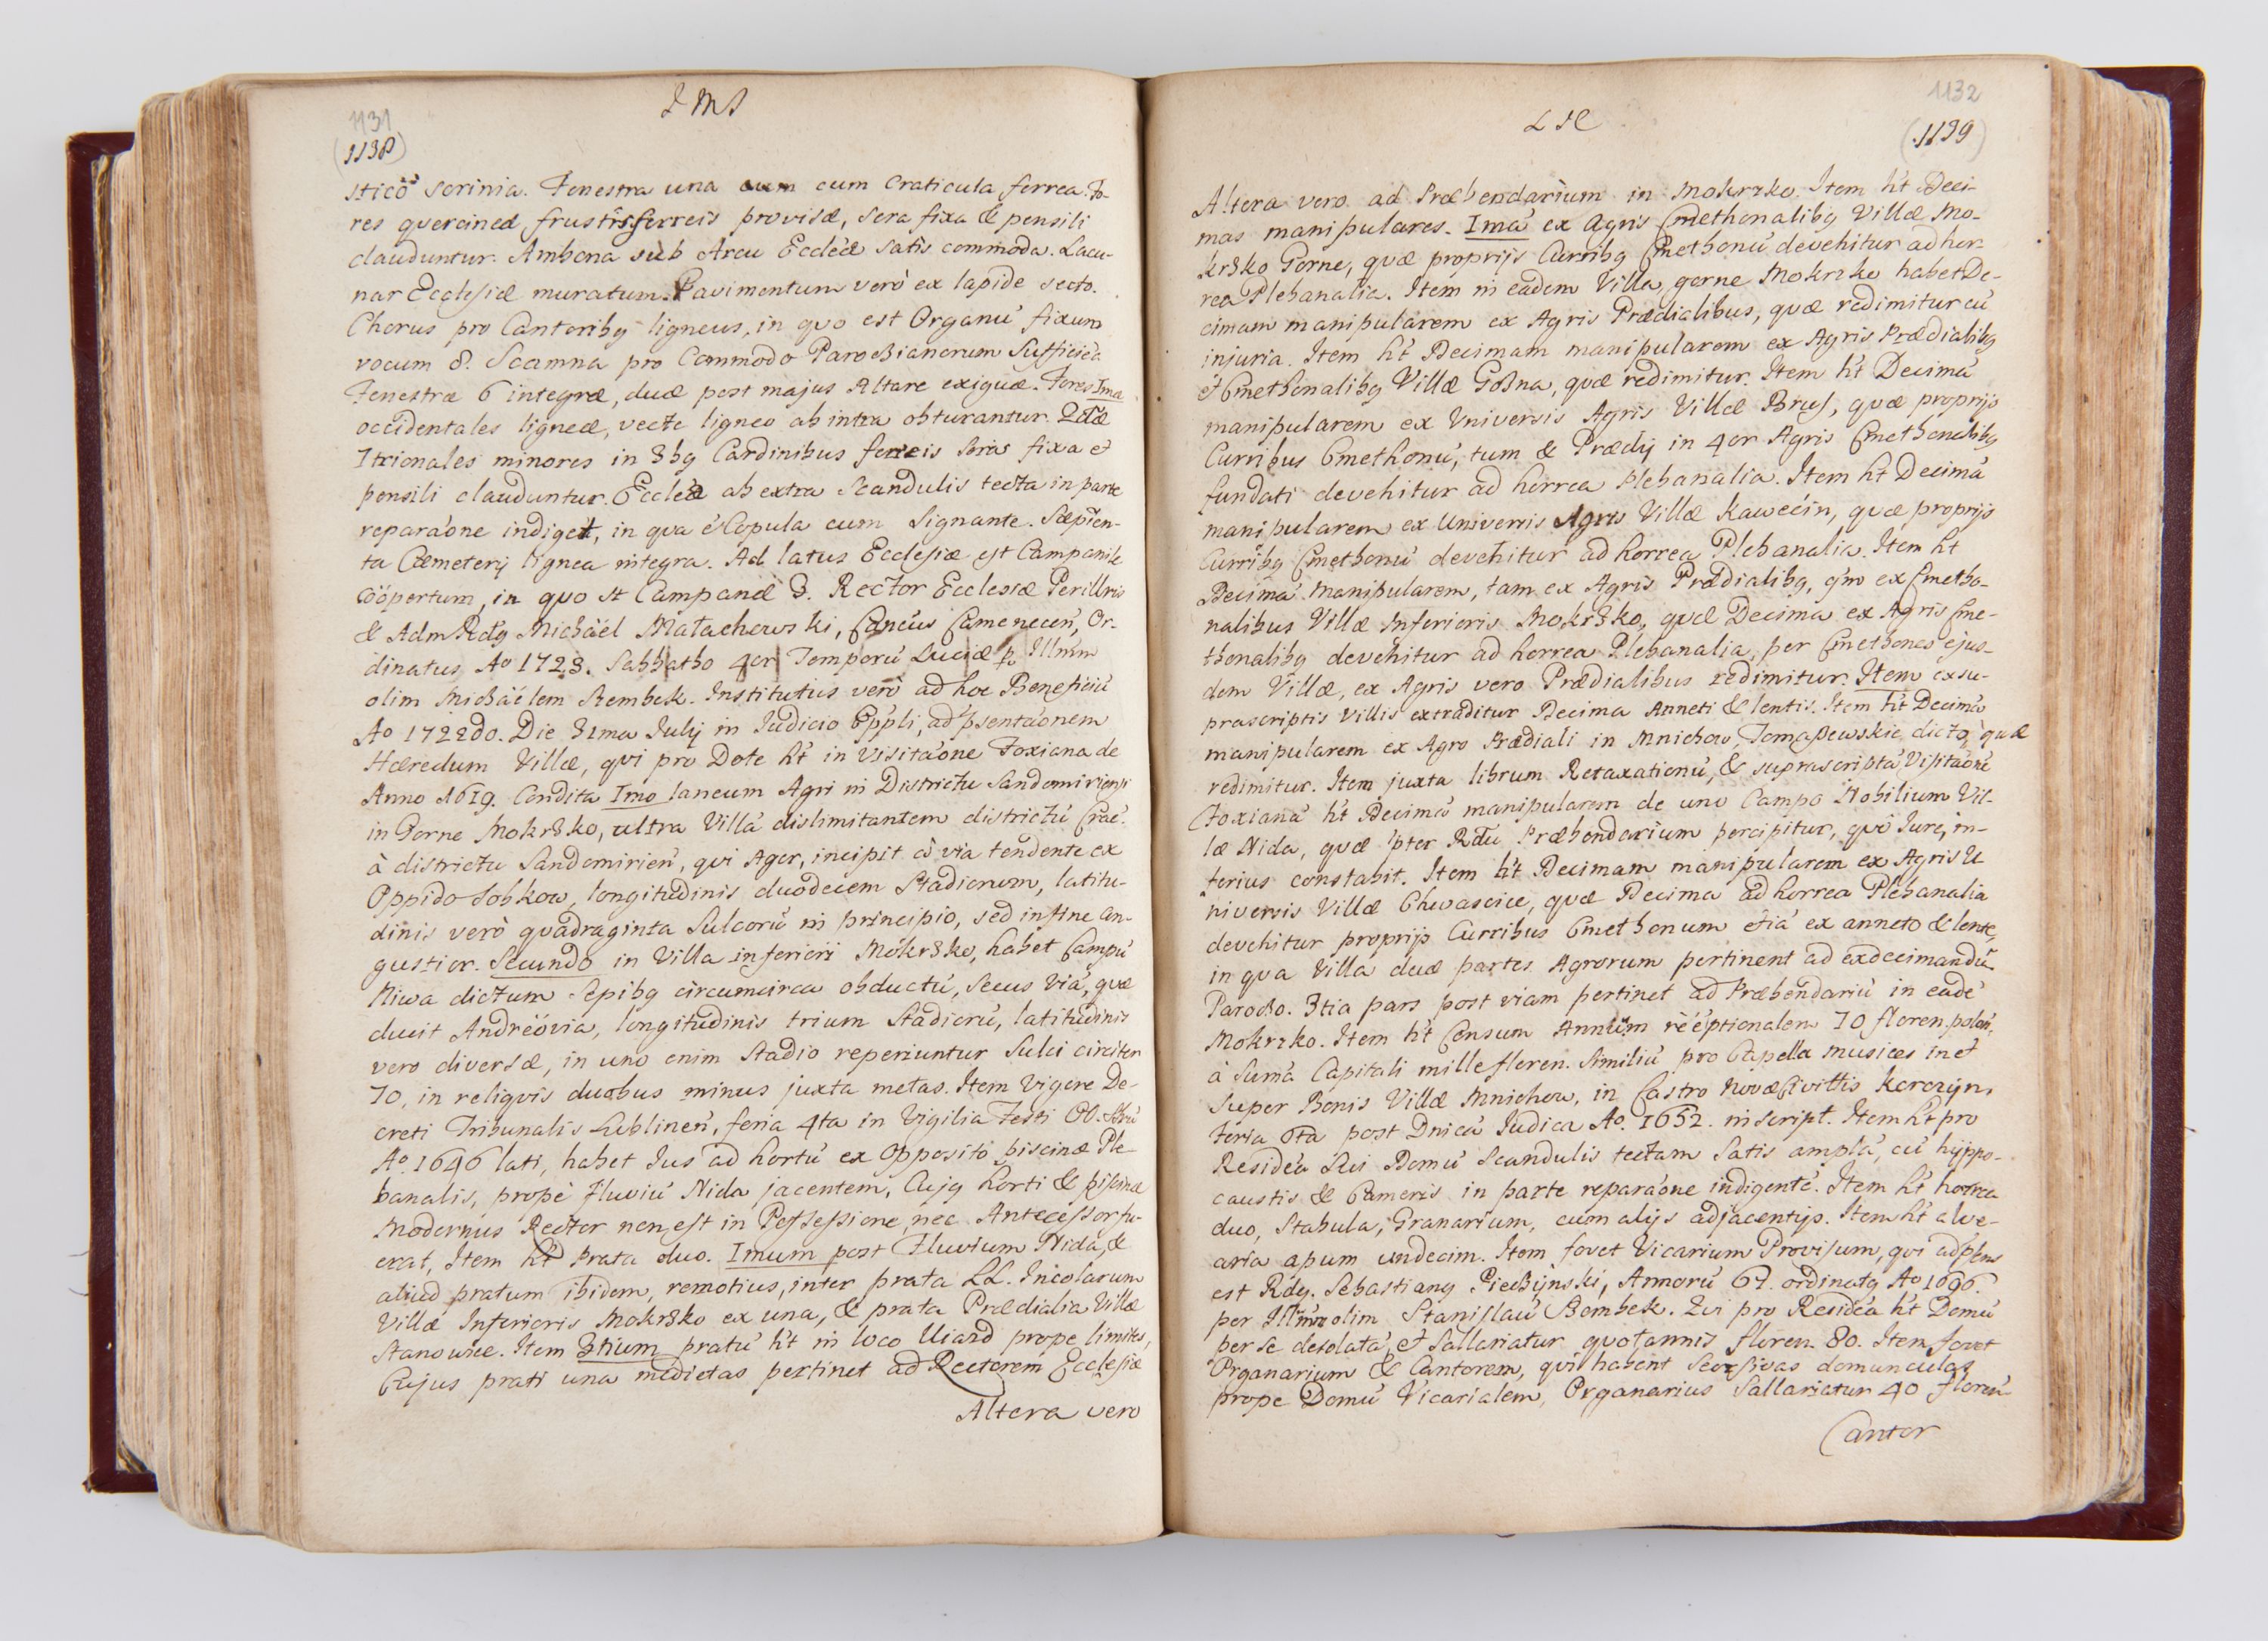 1131
(1138)
I M I
sticõ scrinia. Fenestra una cum cum craticula ferrea. Fo-
res quercineæ frustis ferreis provisæ, sera fixa & pensili
clauduntur. Ambona sub Arcu Eccleæ satis commoda. Lacu-
nar Ecclesiæ muratum. Pavimentum verò ex lapide secto.
Chorus pro Cantoribq ligneus, in quo est Organu fixum
vocum 8. Scamna pro Commodo Parochianorum Sufficiéa
Fenestræ 6 integræ, duæ post majus Altare exiguæ. Fores Imæ
occidentales ligneæ, vecte ligneo ab intra obturantur. 2dæ
7trionales minores in 3bq Cardinibus ferreis sera fixa et
pensili clauduntur. Ecclea ab extra Scandulis tecta in parte
reparaóne indiget, in qva é Copula cum Signante. Sæpien-
ta Cæmeterij lignea integra. Ad latus Ecclesiæ est Campanile
coöpertum, in quo st Campanæ 3. Rector Ecclesiæ Perillris
& Adm Rdq Michaël Małachowski, Cancus Camenecen, Or-
dinatus Ao 1723. Sabbatho 4or Temporu Luciæ p. Illmm
olim Michaëlem Szembek. Institutus verò ad hoc Beneficiu
Ao 1722do. Die 31ma Julij in Judicio Eppli, ad psentaónem
Hæredum Villæ, qvi pro Dote ht in Visitaóne Foxiana de
Anno 1619. Condita Imo laneum Agri in Districtu Sandomiriensi
in Gorne Mokrsko, ultra Villá dislimitantem districtú Crac.
à districtu Sandomirien, qvi Ager, incipit à via tendente ex
Oppido Sobkow, longitudinis duodecem Stadiorum, latitu-
dinis verò quadraginta Sulcorú in principio, sed in fine an-
gustior. Secundo in Villa inferiori Mokrsko, habet Campú
Niwa dictum Sepibq circumcirca obductú, Secus Viá, quæ
ducit Andreóvia, longitudinis trium Stadiorú, latitudinis
vero diversæ, in uno enim Stadio reperiuntur Sulci circiter
70, in reliqvis duobus minus juxta metas. Item Vigore De-
creti Tribunalis Lublinen, feria 4ta in Vigilia Festi OO. Stru
Ao. 1646 lati, habet Jus ad hortú ex Opposito piscinæ Ple-
banalis, propè Fluviú Nida jacentem, Cujq horti & piscinæ
Modernus Rector non est in Possessione nec Antecessor fu-
erat, Item ht Prata duo. Imum post Fluvium Nidá, &
aliud pratum ibidem, remotius, inter prata LL. Incolarum
Villæ Inferioris Mokrsko ex una, & prata Prædialia Villæ
Stanowice. Item 3tium pratú ht in loco Uiazd prope limites,
Cujus prati una medietas pertinet ad Rectorem Ecclesiæ
Altera vero
1132
(1139)
Altera vero ad Præbendarium in Mokrzko. Item ht Deci-
mas manipulares. Imá ex Agris Cmethonalibq Villæ Mo-
krsko Gorne, quæ proprijs Curribq Cmethonú devehitur ad hor-
rea Plebanalia. Item in eadem Villa gorne Mokrzko habet De-
cimam manipularem ex Agris Prædialibus, quæ redimitur cú
injuria. Item ht Decimam manipularem ex Agris Prædialibq
et Cmethonalibq Villæ Gosna, quæ redimitur. Item ht Decimá
manipularem ex Universis Agris Villæ Brus, quæ proprijs
Curribus Cmethonú, tum & Prædij in 4or Agris Cmethonalibq
fundati devehitur ad horrea Plebanalia. Item ht Decimá
manipularem ex Universis Agris Villæ Kawecin, quæ proprijs
Curribq Cmethonú devehitur ad horrea Plebanalia. Item ht
Decimá Manipularem, tam ex Agris Prædialibq, qm ex Cmetho-
nalibus Villæ Inferioris Mokrsko, quæ Decima ex Agris Cme-
thonalibq devehitur ad horrea Plebanalia, per Cmethones ejus-
dem Villæ, ex Agris vero Prædialibus redimitur. Item ex su-
prascriptis Villis extraditur Decima Anneti & lentis. Item ht Decimá
manipularem ex Agro Prædiali in Mnichow, Tomaszewskie dicto, quæ
redimitur. Item juxta librum Retaxationú, & suprascriptá Visitaóné
Foxianá ht Decimá manipularem de uno Campo Nobilium Vil-
læ Nida, quæ ipter Rdú Præbendarium percipitur, quô Jure, in-
ferius constabit. Item ht Decimam manipularem ex Agris U
niversis Villæ Chwascice, quæ Decima ad horrea Plebanalia
devehitur proprijs Curribus Cmethonum etiá ex anneto & lente,
in qva Villa duæ partes Agrorum pertinent ad exdecimandú
Parocho. 3tia pars post viam pertinet ad Præbendariú in eadé
Mokrzko. Item ht Censum Annúm reéptionalem 70 floren. polon.
à Sumá Capitali mille floren. Similiú pro Capella musices in et
Super Bonis Villæ Mnichow, in Castro Novæ Civittis Korczyn,
Feria 6ta post Dnicá Judica Ao. 1652. inscript. Item ht pro
Residéa Sui Domú Scandulis tectam Satis amplá, cú hyppo-
caustis & Cameris in parte reparaóne indigenté. Item ht horrea
duo, Stabula, Granarium, cum alijs adjacentijs. Item ht alve-
aria apum undecim. Item fovet Vicarium Provisum, qvi ad psens
est Rdq. Sebastianq Piechÿnski, Annorú 67. ordinatq Ao 1696.
per Illmm olim Stanislaú Szembek. Qui pro Residéa ht Domú
per se desolatá, et Sallariatur quotannis floren. 80. Item fovet
Organarium & Cantorem, qvi habent Seorsivas domunculas
prope Domú Vicarialem, Organarius Sallariatur 40 floren
Cantor